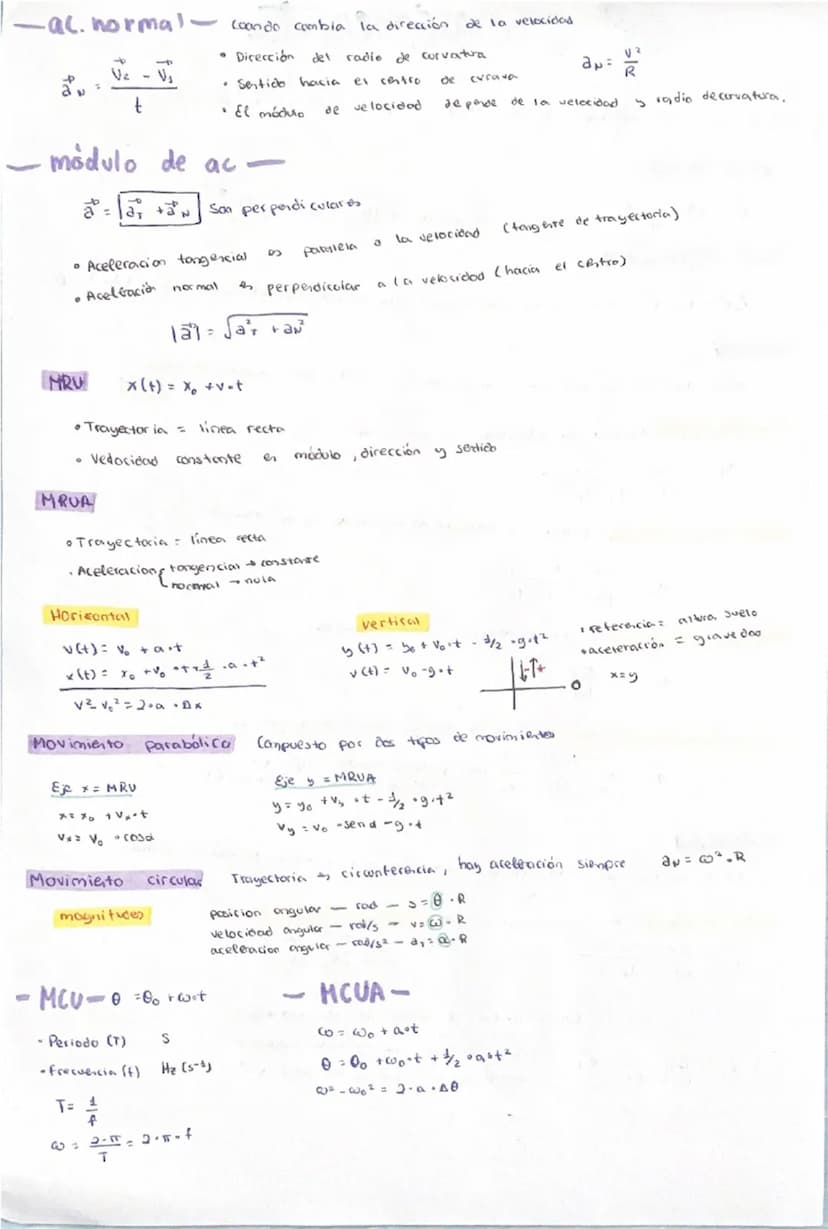 — ac. normal — cuando cambia la dirección de la velocidad
a⃗N = (v⃗2 - v⃗1) / t
• Dirección del radio de curvatura
• Sentido hacia el centro de curava
• El módulo de velocidad depende de la velocidad y radio de curvatura.
aN = v² / R
— módulo de ac —
a⃗ = |a⃗T + a⃗N| Son perpendiculares
• Aceleracion tangencial es paralela a la velocidad (tangente de trayectoria)
• Aceleración normal es perpendicular a la velocidad (hacia el centro)
|a⃗| = √(a²T + aN²)
MRU x(t) = x0 + v·t
• Trayectoria = línea recta
• Velocidad constante en módulo, dirección y sentido
MRUA
• Trayectoria = línea recta
• Aceleracion { tangencial → constante
normal → nula
Horizontal
v(t) = v0 + a·t
x(t) = x0 + v0·t + 1/2 ·a·t²
v² - v0² = 2·a·Δx
vertical
y(t) = y0 + v0·t - 1/2 ·g·t²
v(t) = v0 - g·t
- ↓↑ +
0
• referencia = altura suelo
• aceleración = gravedad
x=y
Movimiento parabólico Compuesto por dos tipos de movimientos
Eje x = MRU
x = x0 + vx·t
vx = v0 · cosα
Eje y = MRUA
y = y0 + vy·t - 1/2 ·g·t²
vy = v0 ·sen α - g·t
Movimiento circular Trayectoria → circunferencia, hay aceleración siempre aN = ω²·R
magnitudes
posicion angular — rad — s = θ·R
velocidad angular — rad/s — v = ω·R
aceleracion angular — rad/s² — aT = α·R
— MCU — θ = θ0 + ω·t
• Periodo (T) s
• Frecuencia (f) Hz (s⁻¹)
T = 1/f
ω = 2·π/T = 2·π·f
— MCUA —
ω = ω0 + a·t
θ = θ0 + ω0·t + 1/2 ·a·t²
ω² - ω0² = 2·a·Δθ